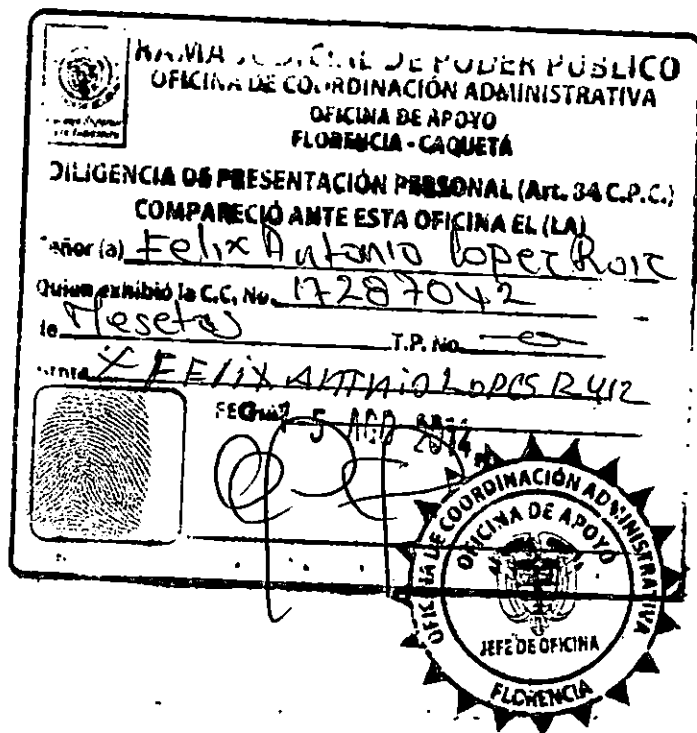 RAMA JUDICIAL DE PODER PÚBLICO
OFICINA DE COORDINACIÓN ADMINISTRATIVA
OFICINA DE APOYO
FLORENCIA - CAQUETÁ
DILIGENCIA DE PRESENTACIÓN PERSONAL (Art. 84 C.P.C.)
COMPARECIÓ ANTE ESTA OFICINA EL (LA)
Señor (a) Felix Antonio Lopez Ruiz
Quien exhibió la C.C. No. 17287042
de Mesetas T.P. No.
Firma X FELIX ANTNiO LOPES RUIZ
FECHA 5 AGO
OFICINA DE COORDINACIÓN ADMINISTRATIVA
OFICINA DE APOYO
JEFE DE OFICINA
FLORENCIA